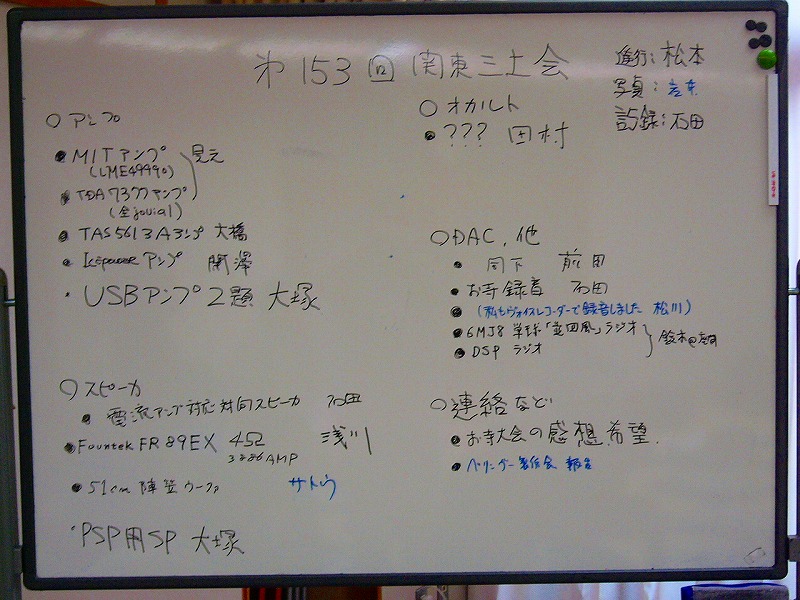 第153回 関東三土会
進行：松本
写真：
記録：石田
○ アンプ
● MITアンプ 見元
(LME49990)
● TDA7377アンプ
(全jovial)
● TAS5613Aアンプ 大橋
● Icepowerアンプ 関澤
・USBアンプ2題 大塚
○ スピーカ
● 電流アンプ対応対向スピーカ 石田
● Fountek FR89EX 4Ω 浅川
3886AMP
● 51cm 陣笠ウーファ サトウ
・PSP用SP 大塚
○ オカルト
● ??? 田村
○ DAC, 他
● 同下 前田
● お寺録音 石田
● (私もヴォイスレコーダーで録音しました 松川)
● 6MJ8 単球「並四風」ラジオ
● DSP ラジオ 鈴木@
○ 連絡など
● お寺大会の感想、希望.
● ベリンガー製作会 報告